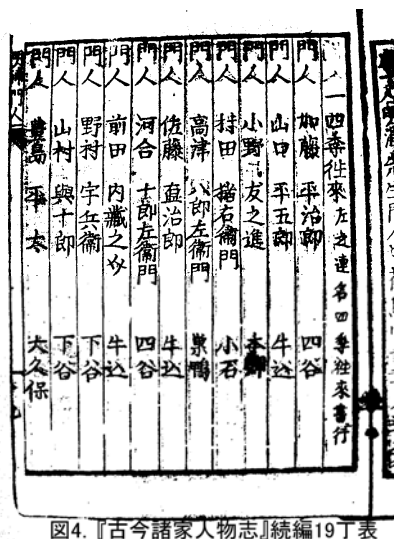 一四季往來左之連名四季往來書行
門人 加藤 平治郎 四谷
門人 山口 平五郎 牛込
門人 小野 友之進 本郷
門人 持田 猪右衞門 小石
門人 高津 八郎左衞門 巣鴨
門人 佐藤 直治郎 牛込
門人 河合 十郎左衞門 四谷
門人 前田 牛込
門人 野村 宇兵衞 下谷
門人 山村 與十郎 下谷
門人 豊島 平太 大久保
図4.『古今諸家人物志』続編19丁表